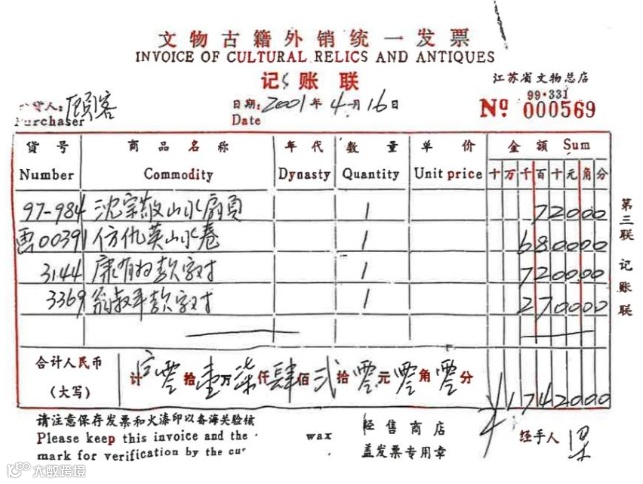 文物古籍外销统一发票
INVOICE OF CULTURAL RELICS AND ANTIQUES
记账联
江苏省文物总店
99·331
№ 000569
货人: 顾客
Purchaser
日期: 2001年4月16日
Date
货号 商品名称 年代 数量 单价 金额 Sum
Number Commodity Dynasty Quantity Unit price 十万千百十元角分
97-984 沈宗敬山水扇页 1 72000
00391 仿仇英山水卷 1 680000
3144 康有为款字对 1 720000
3369 翁叔平款字对 1 270000
合计人民币
(大写)
计 零拾壹万柒仟肆佰贰拾零元零角零分 1742000
第三联 记账联
请注意保存发票和火漆印以备海关验核
Please keep this invoice and the wax
mark for verification by the cu
经售商店
盖发票专用章
经手人 梁
大数跨境